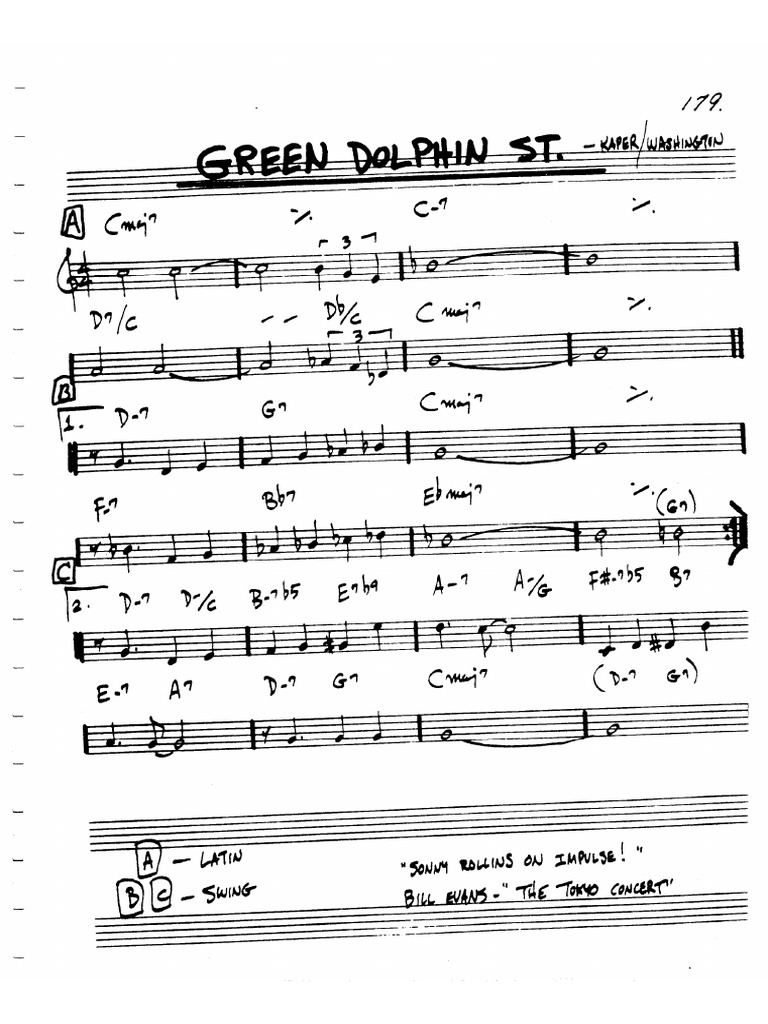 179.
GREEN DOLPHIN ST. - KAPER/WASHINGTON
A Cmaj7 ٪. C-7 ٪.
3
D7/C - - Db/C Cmaj7 ٪.
3
B
1. D-7 G7 Cmaj7 ٪.
F-7 Bb7 Ebmaj7 ٪. (G7)
C
2. D-7 D-/C B-7b5 E7b9 A-7 A-/G F#-7b5 B7
E-7 A7 D-7 G7 Cmaj7 (D-7 G7)
A - LATIN
B C - SWING
"SONNY ROLLINS ON IMPULSE!"
BILL EVANS - "THE TOKYO CONCERT"